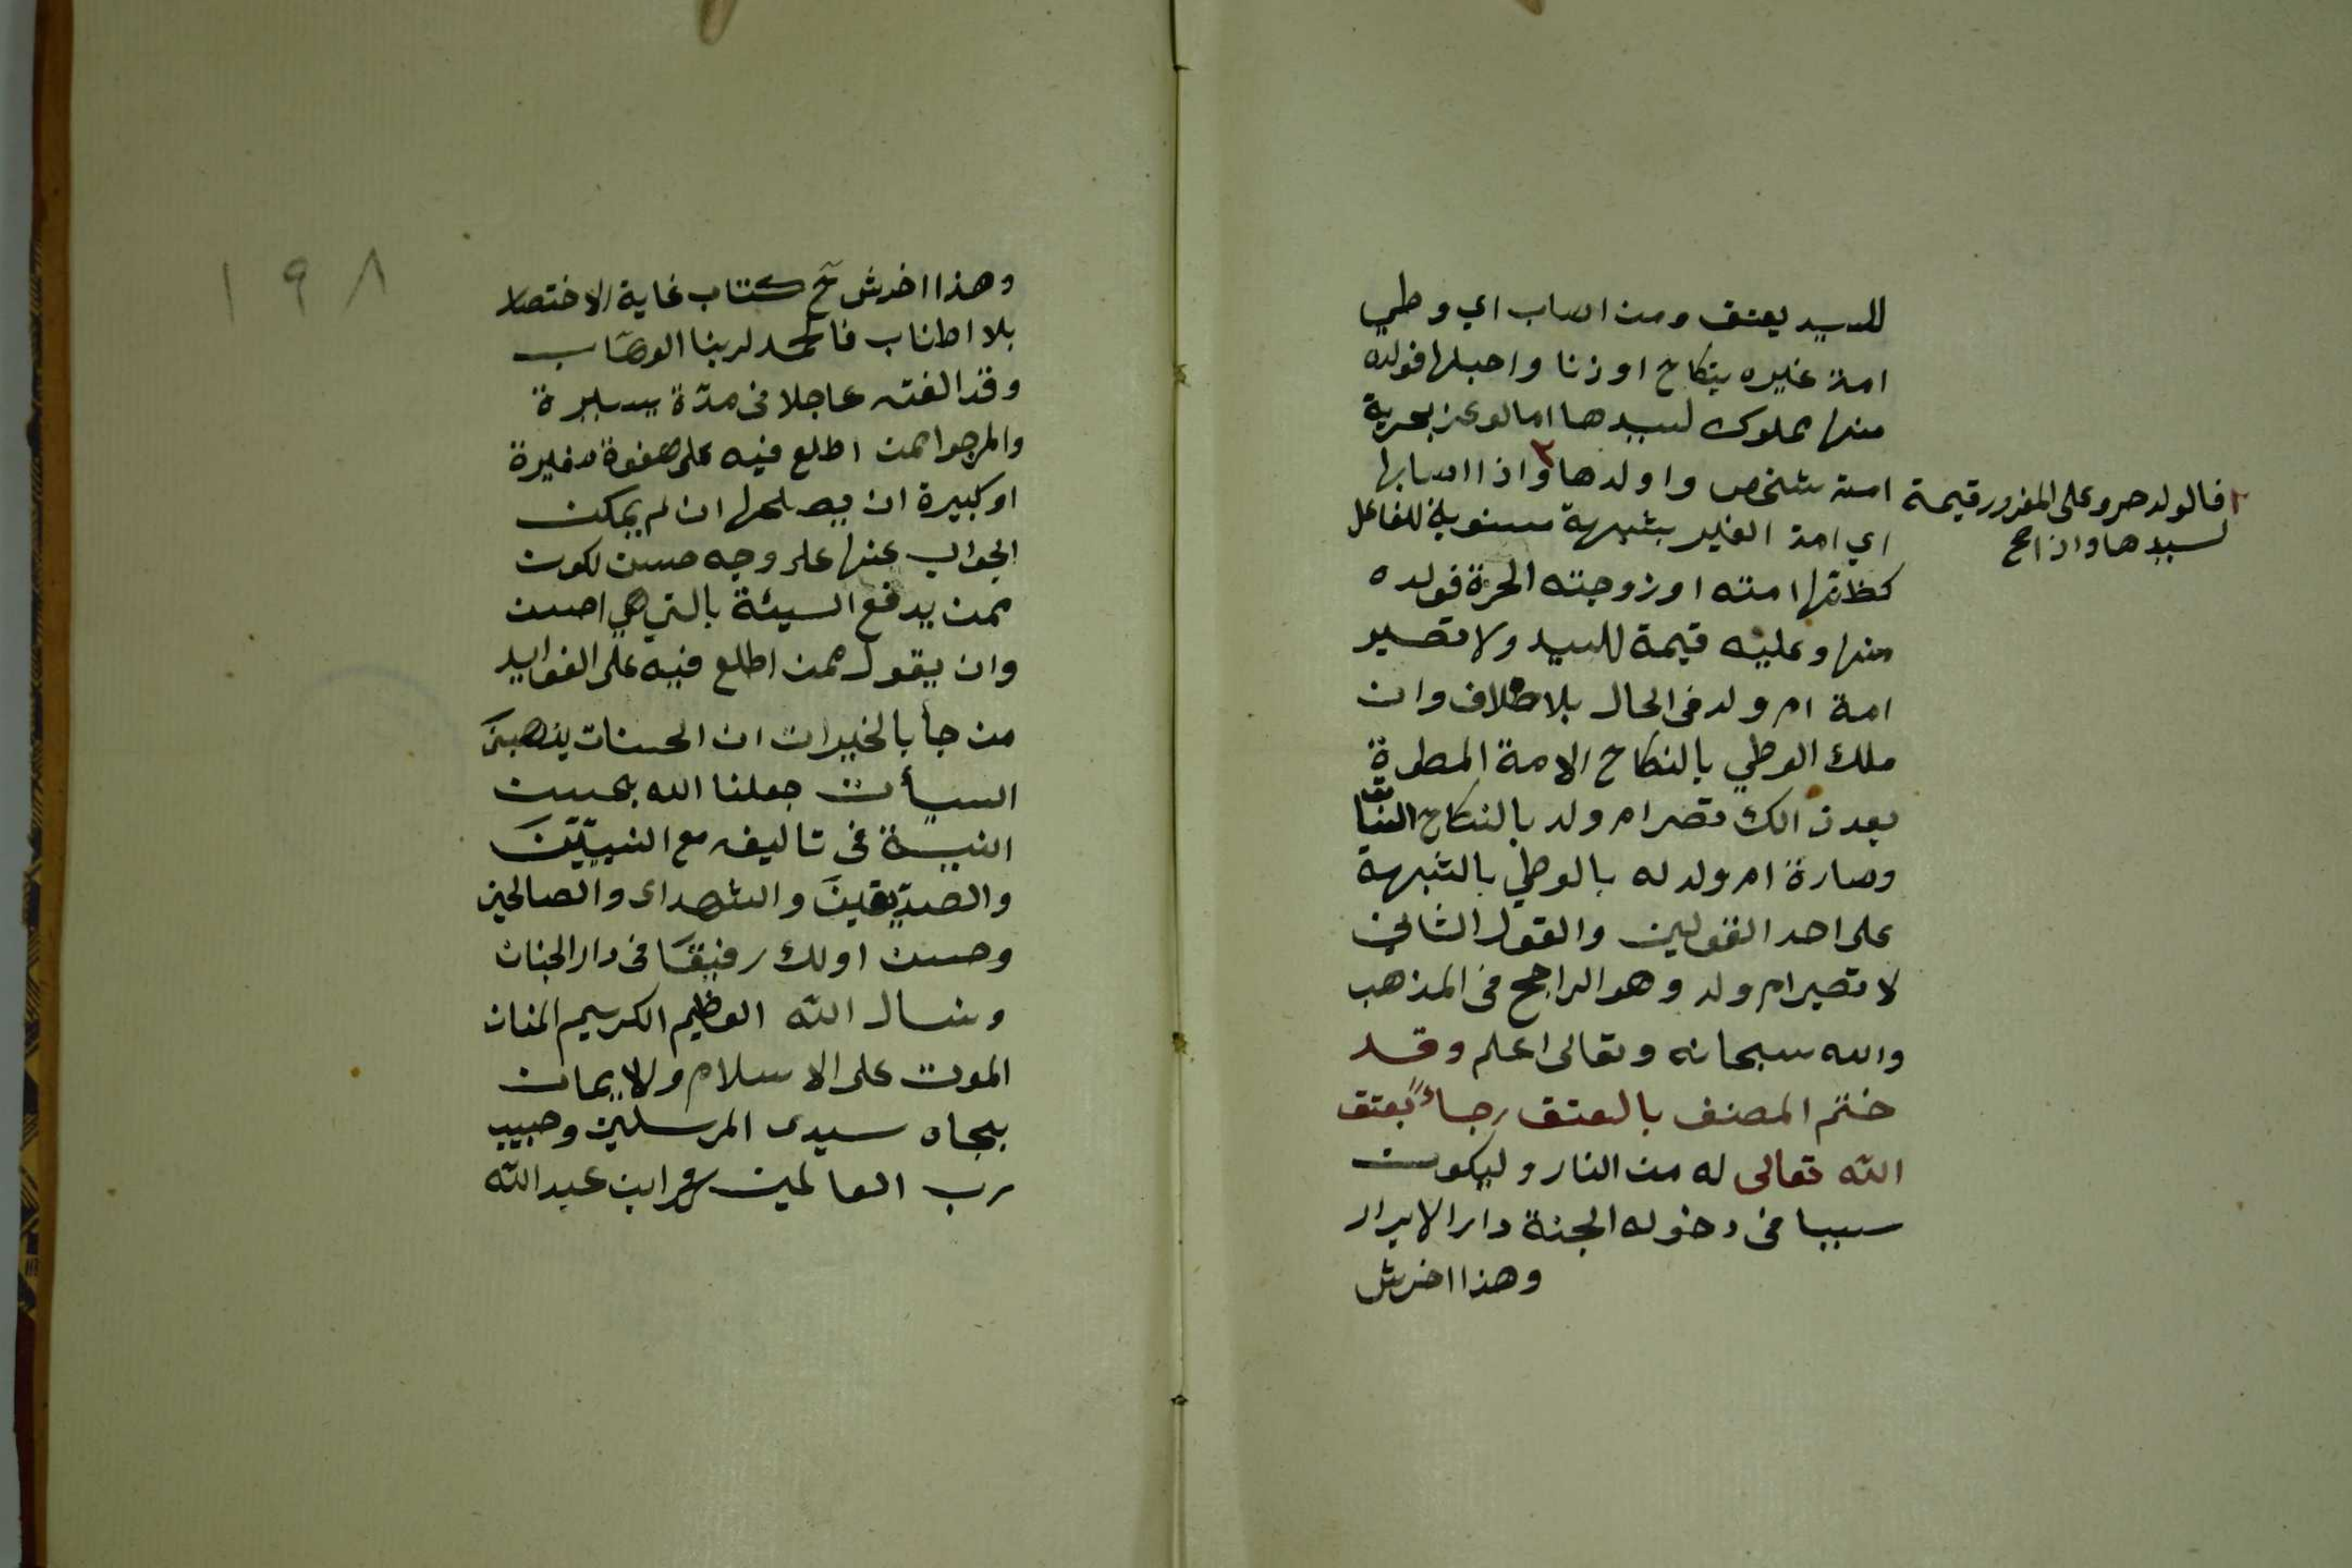 للسيد يعتق ومن اصاب اي وطي
امة غيره بنكاح او زنا واحبلها فولده
منها مملوك لسيدها امالوغر بحرية
امته شخص واولدها ٢ واذا اصابها
٢ فالولد حر وعلى المغرور قيمة
لسيدها واذا صح
اي امة الغير بشبهة منسوبة للفاعل
كظنها امته او زوجته الحرة فولده
منها وعليه قيمة للسيد ولا تصير
امة ام ولد في الحال بلا خلاف وان
ملك الوطي بالنكاح الامة المطوة
بعد ذالك تصر ام ولد بالنكاح
وصارة ام ولد له بالوطي بالشبهة
على احد القولين والقول الثاني
لا تصير ام ولد وهو الراجح في المذهب
والله سبحانه وتعالى اعلم وقد
ختم المصنف بالعتق رجاءً بعتق
الله تعالى له من النار وليكون
سببا في دخوله الجنة دار الابرار
وهذا اخرش
١٩٨
وهذا اخرش ح كتاب غاية الاختصار
بلا اطناب فالحمد لربنا الوهاب
وقد الفته عاجلا في مدّة يسيرة
والمرجوا ممن اطلع فيه على هفوة صغيرة
او كبيرة ان يصلحها ان لم يمكن
الجواب عنها على وجه حسن لكون
ممن يدفع السيئة بالتي هي احسن
وان يقول ممن اطلع فيه على الفوايد
من جأ بالخيرات ان الحسنات يذهبنَ
السيأت جعلنا الله بحسن
النية في تاليفه مع النبيّينَ
والصدّيقينَ والشهداى والصالحين
وحسن اولك رفيقًا في دار الجنان
ونسال الله العظيم الكريم المنان
الموت على الاسلام والايمان
بجاه سيدى المرسلين وحبيب
رب العالمين ابن عبد الله